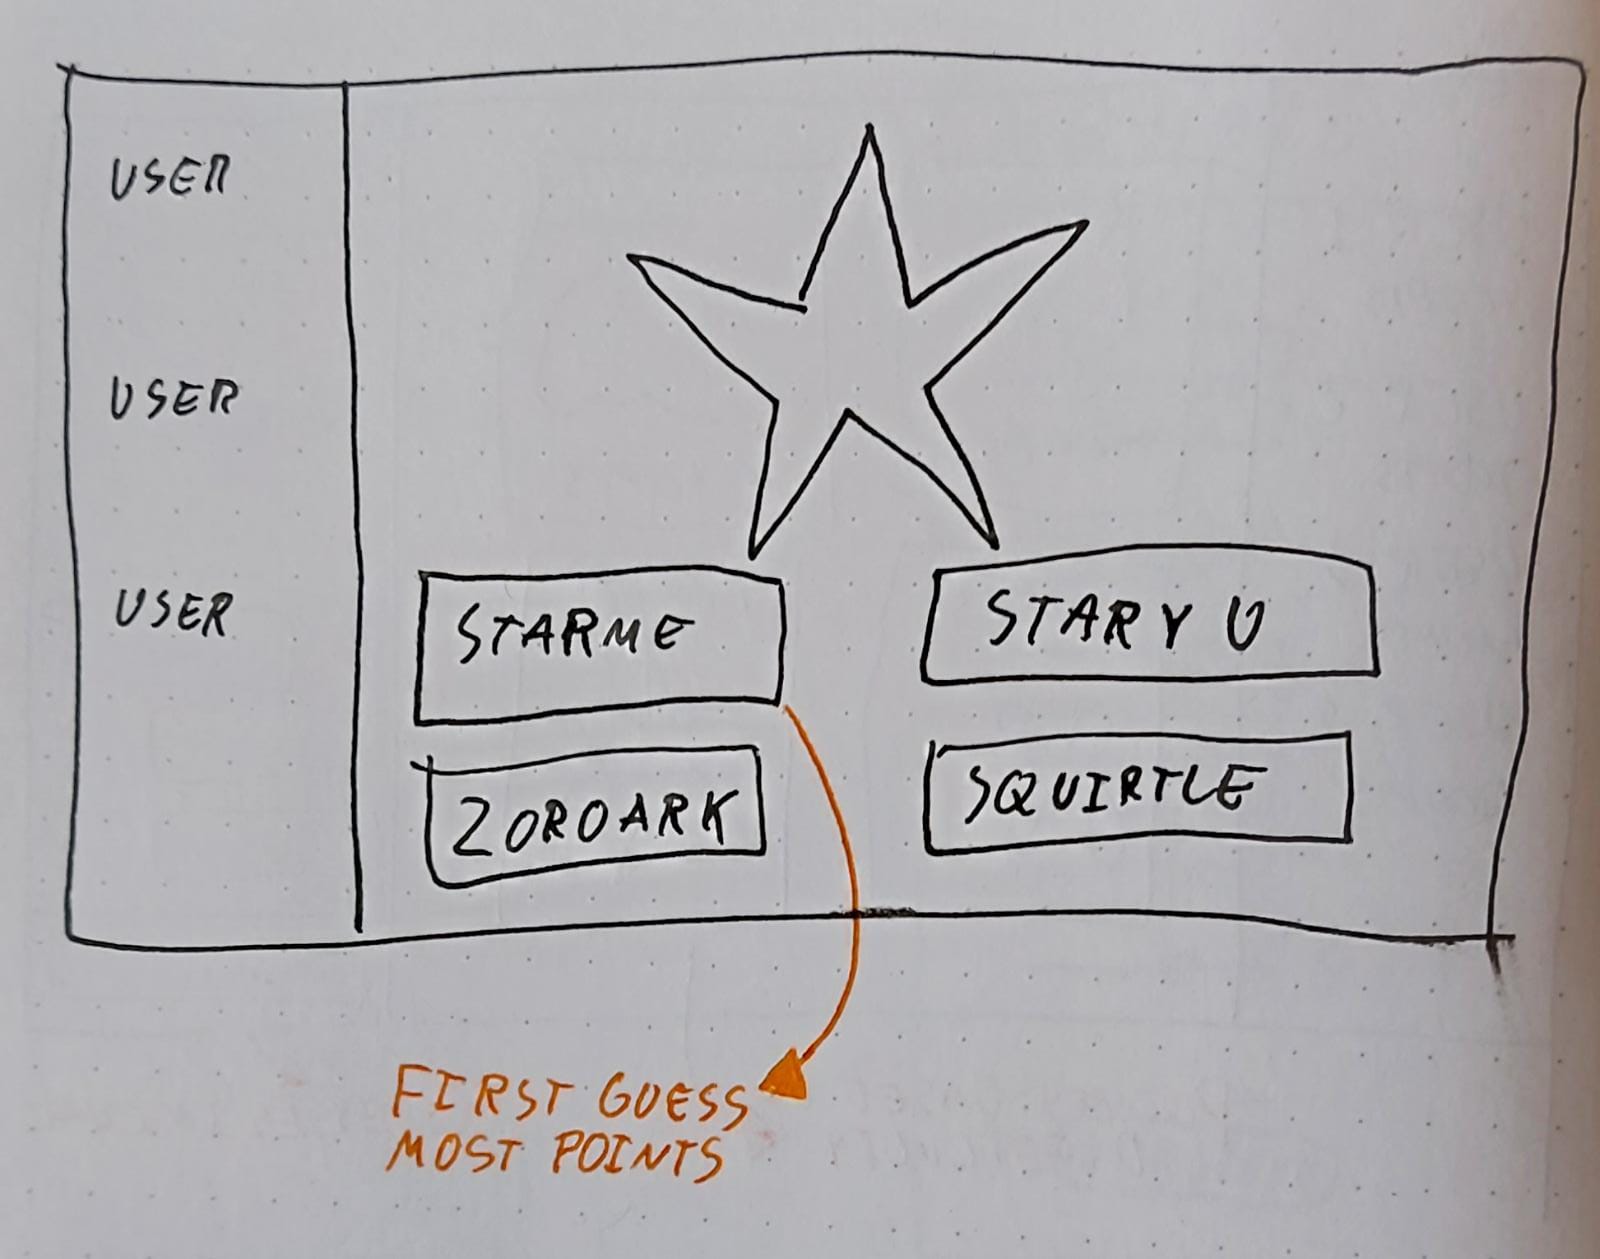 USER
USER
USER
STARME
STARYU
ZOROARK
SQUIRTLE
FIRST GUESS
MOST POINTS